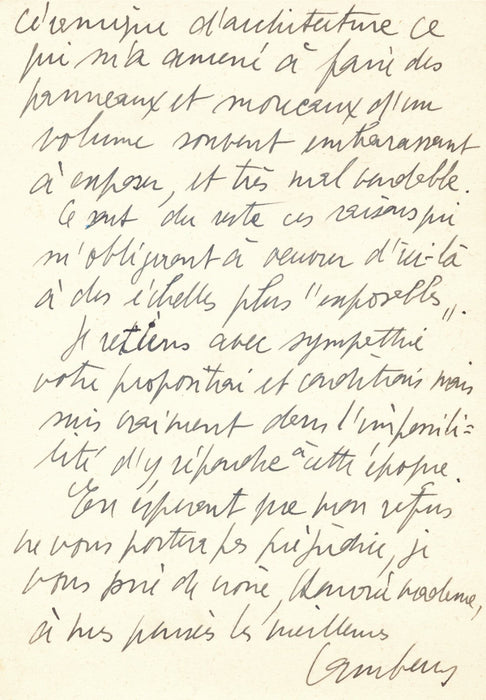 céramique d'architecture ce
qui m'a amené à faire des
panneaux et morceaux d'un
volume souvent embarassant
à exposer, et très mal vendable.
Ce sont du reste ces raisons qui
m'obligeront à oeuvrer d'ici-là
à des échelles plus "exposables".
Je retiens avec sympathie
votre proposition et conditions mais
suis vraiment dans l'impossibi=
lité d'y répondre à cette époque.
En espérant que mon refus
ne vous portera pas préjudice, je
vous prie de croire, chère madame,
à mes pensées les meilleures